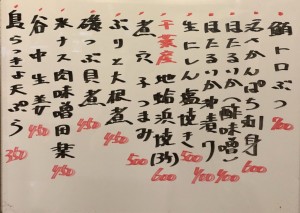 鮪トロぶつ 700
えべかんぱち刺身 600
ほたるいか(酢味噌) 400
ほたるいか沖漬け 400
生にしん塩焼き 500
千葉産 地蛤浜焼(3ケ) 600
煮穴子つまみ 500
ぶりと大根煮 450
磯つぶ貝煮 450
水ナス肉味噌田楽 450
谷中生姜 400
島らっきょ天ぷら 350